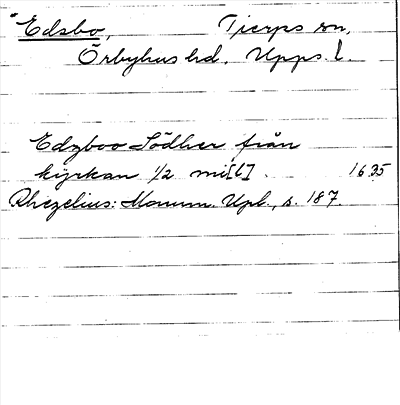 "Edsbo, Tierps sn,
Örbyhus hd. Upps. l.
Edzboo Södher från
kyrkan 1/2 mi[l]. 1635
Rhezelius: Monum. Upl., s. 187.